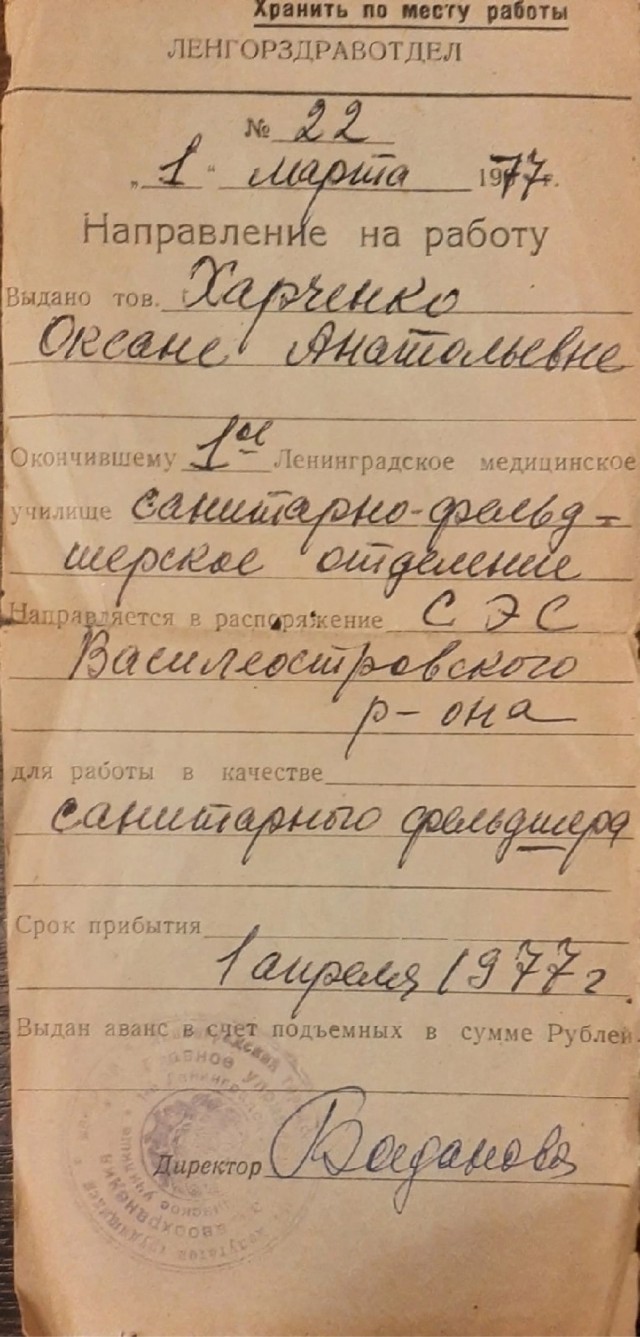 Хранить по месту работы
ЛЕНГОРЗДРАВОТДЕЛ
№ 22
„1“ марта 1977 г.
Направление на работу
Выдано тов. Харченко
Оксане Анатольевне
Окончившему 1ое Ленинградское медицинское
училище санитарно-фельд-
шерское отделение
Направляется в распоряжение СЭС
Василеостровского
р-она
для работы в качестве
санитарного фельдшера
Срок прибытия
1 апреля 1977 г
Выдан аванс в счет подъемных в сумме Рублей.
Директор